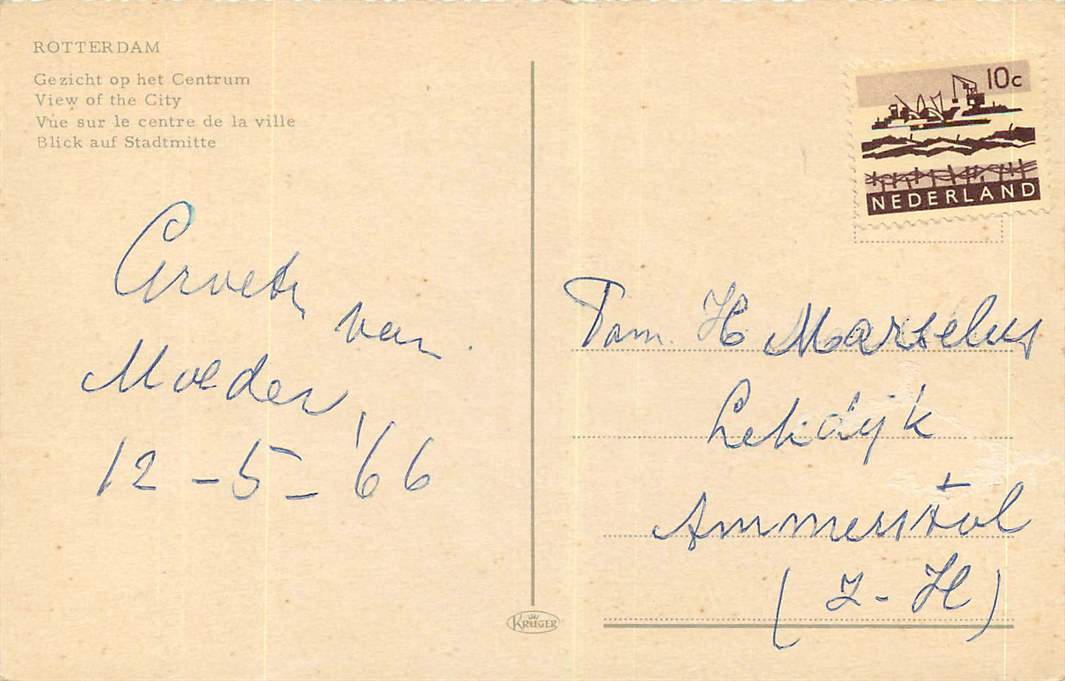 ROTTERDAM
Gezicht op het Centrum
View of the City
Vue sur le centre de la ville
Blick auf Stadtmitte
Groeten van
Moeder,
12-5-'66
10c
NEDERLAND
Fam. H Marselus
Lekdijk
Ammerstol
(Z-H)
KRUGER